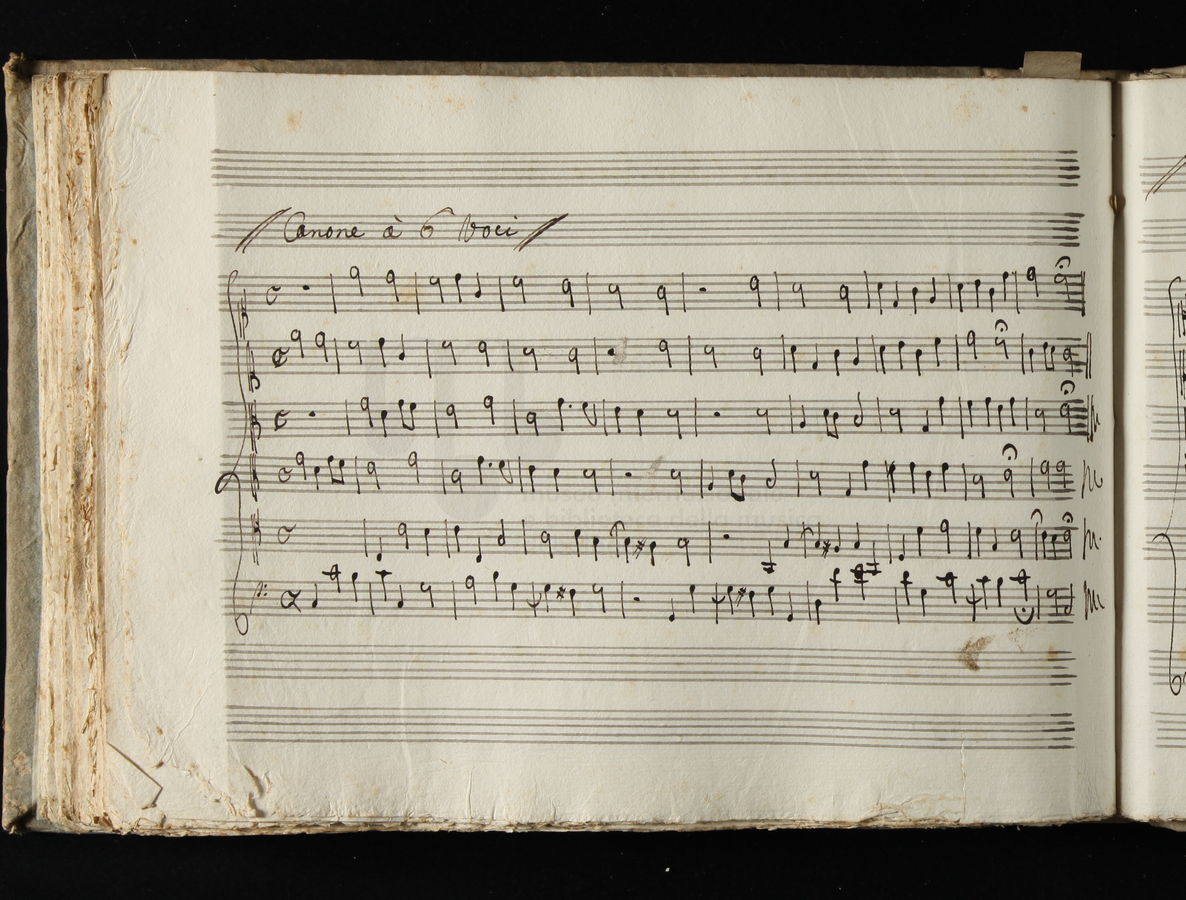 Canone à 6 Voci